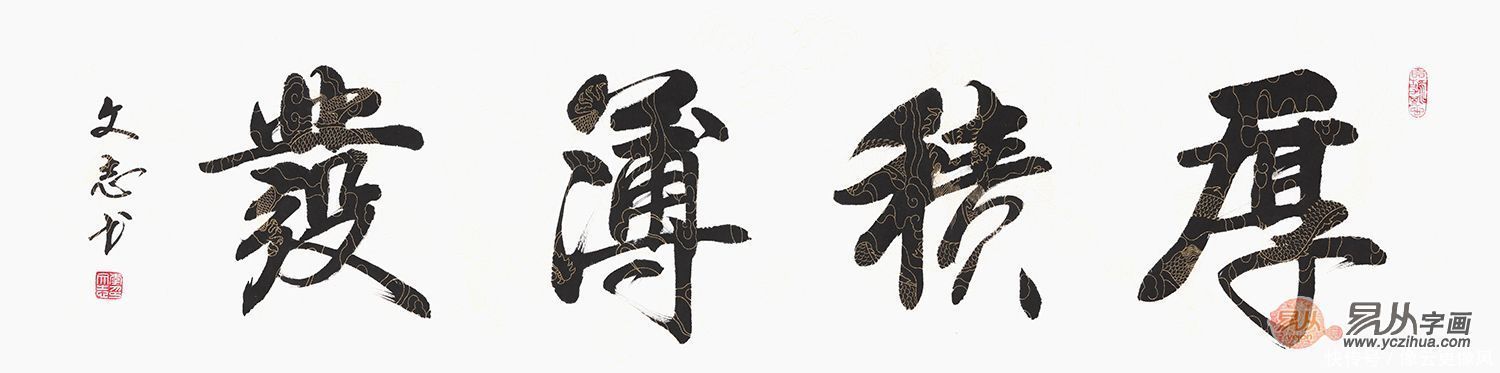 厚積薄發
文志书
易从字画
www.yczihua.com